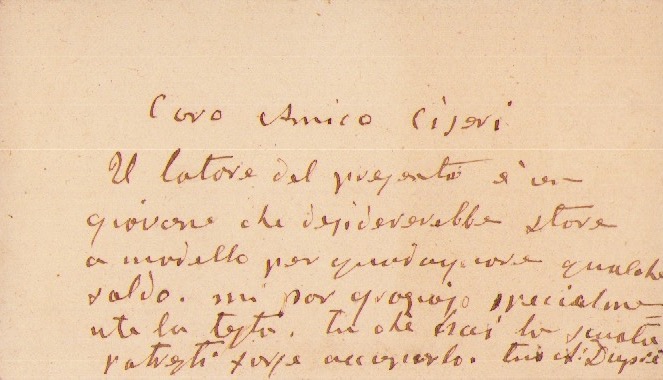 Caro Amico Ciseri
Il latore del presente è un
giovane che desidererebbe stare
a modello per guadagnare qualche
soldo. mi par grazioso specialme=
nte la testa. tu che hai la scuola
potresti forse occuparlo. tuo A: Dupré